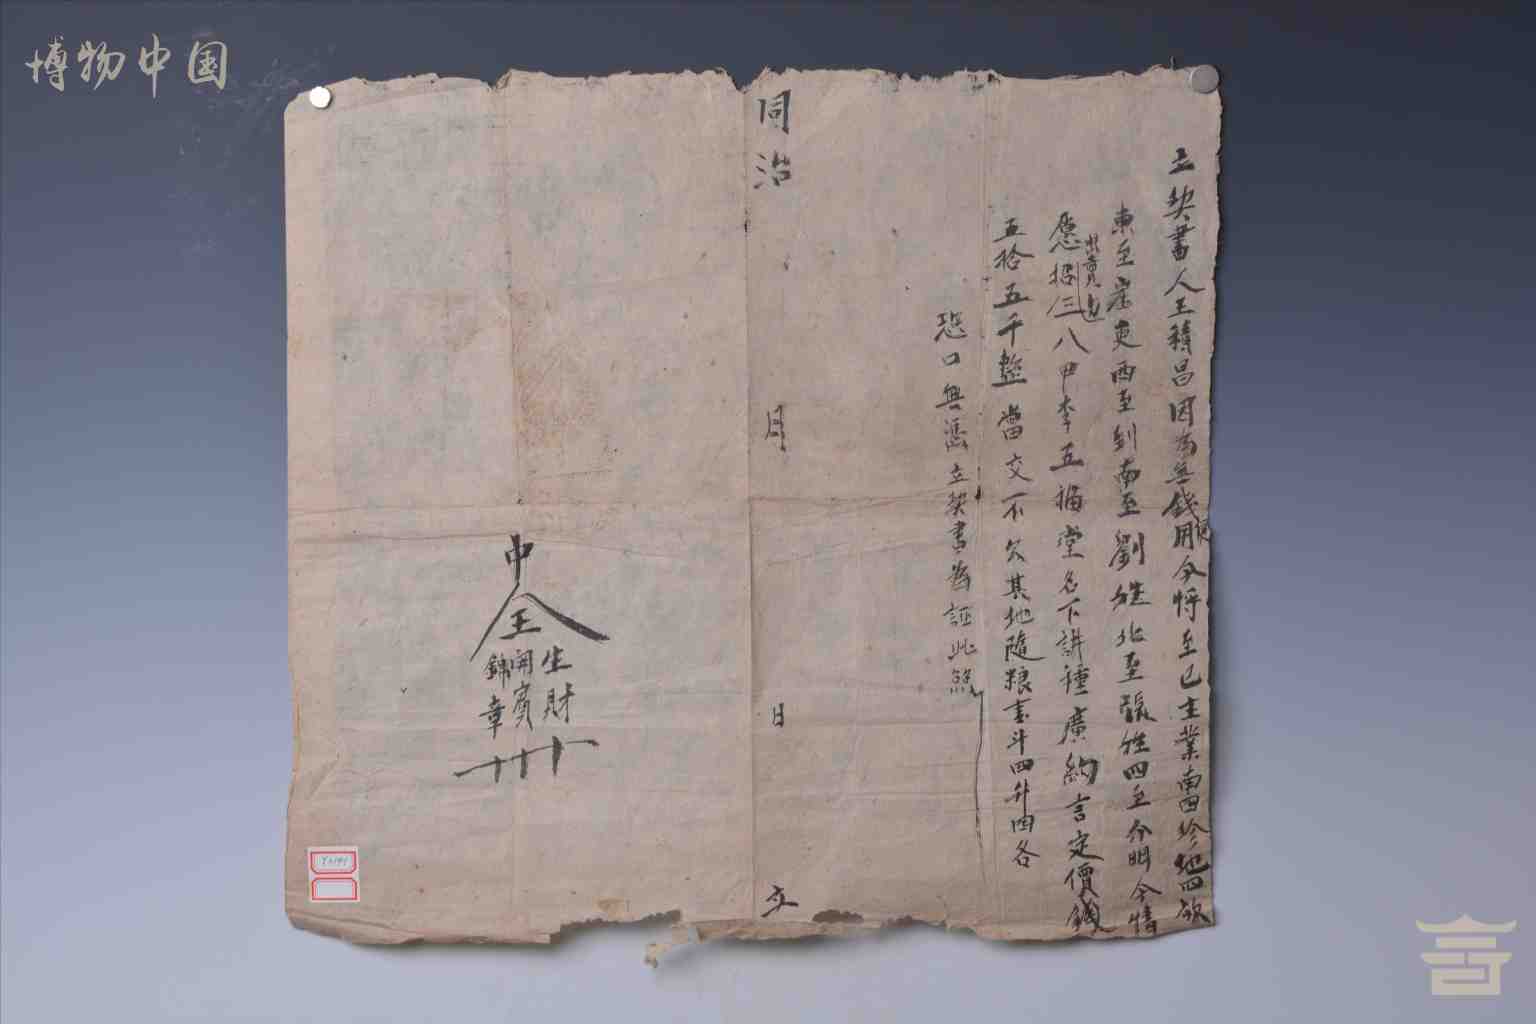 博物中国
立契書人王積昌因為無錢使用今將至己主業南四珍地四畝
東至崖更西至到南至劉姓北至張姓四至分明今情
愿出賣与三八甲李五福堂名下讲種廣約言定價錢
五拾五千整當交不欠其地隨粮壹斗四升四合
恐口無憑立契書為証此照
同治 月 日 立
中仝王
生財
開賓
錦章
十十十